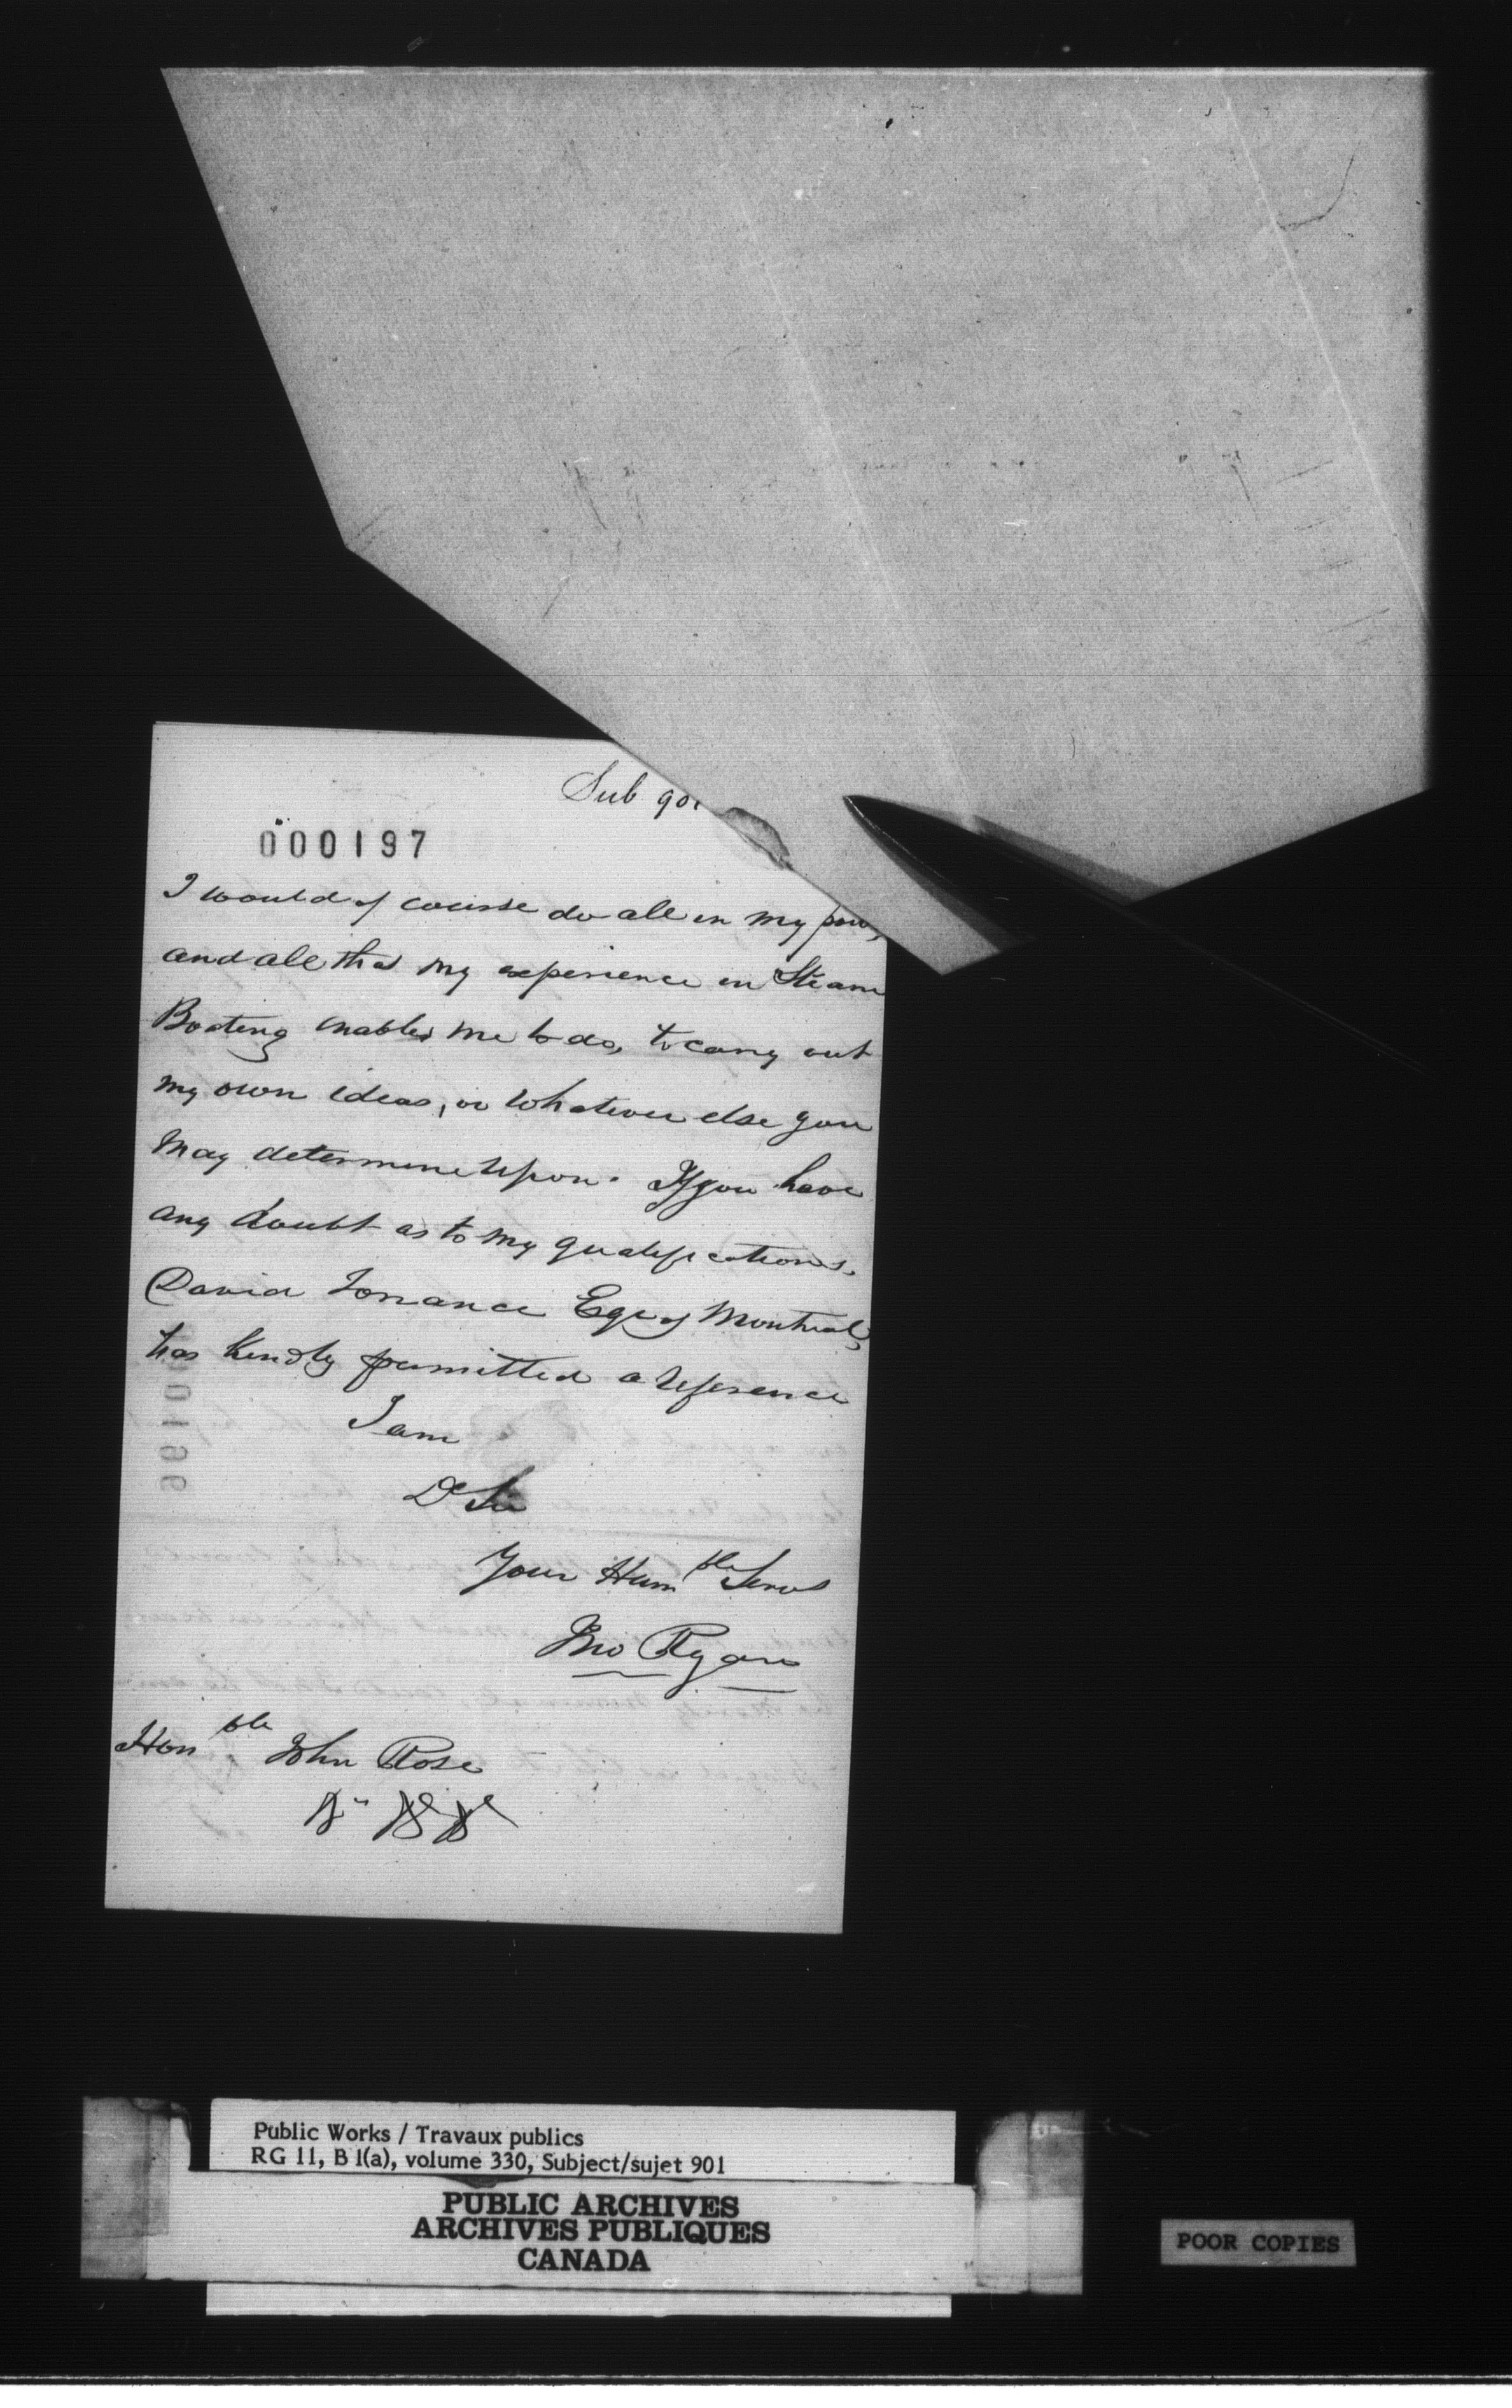 Sub 901
000197
I would of course do all in my pow
and all that my experience in Steam
Boating enables me to do, to carry out
my own ideas, or whatever else you
may determine upon. If you have
any doubt as to my qualifications.
David Torrance Eqr of Montreal,
has kindly permitted a reference
I am
Dr Sir
Your Humble Servt
Jno Ryan
Honble John Rose
Public Works / Travaux publics
RG 11, B 1(a), volume 330, Subject/sujet 901
PUBLIC ARCHIVES
ARCHIVES PUBLIQUES
CANADA
POOR COPIES